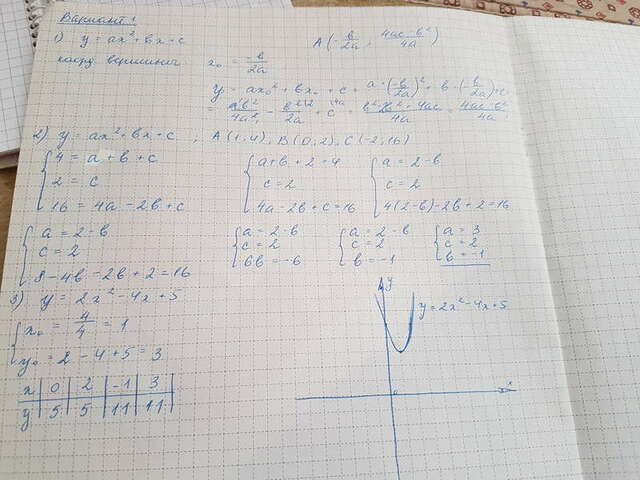 Вариант 1
1) y = ax² + bx + c
коорд вершины x₀ = -b/2a A(-b/2a ; 4ac-b²/4a)
y₀ = ax₀² + bx₀ + c = a·(-b/2a)² + b·(-b/2a) + c
2) y = ax² + bx + c ; A(1,4), B(0,2), C(-2,16)
{ 4 = a + b + c
2 = c
16 = 4a - 2b + c
{ a + b + 2 = 4
c = 2
4a - 2b + c = 16
{ a = 2 - b
c = 2
4(2-b) - 2b + 2 = 16
{ a = 2 - b
c = 2
8 - 4b - 2b + 2 = 16
{ a = 2 - b
c = 2
6b = -6
{ a = 2 - b
c = 2
b = -1
{ a = 3
c = 2
b = -1
3) y = 2x² - 4x + 5
{ x₀ = 4/4 = 1
y₀ = 2 - 4 + 5 = 3
x | 0 | 2 | -1 | 3
y | 5 | 5 | 11 | 11
y
y = 2x² - 4x + 5
x